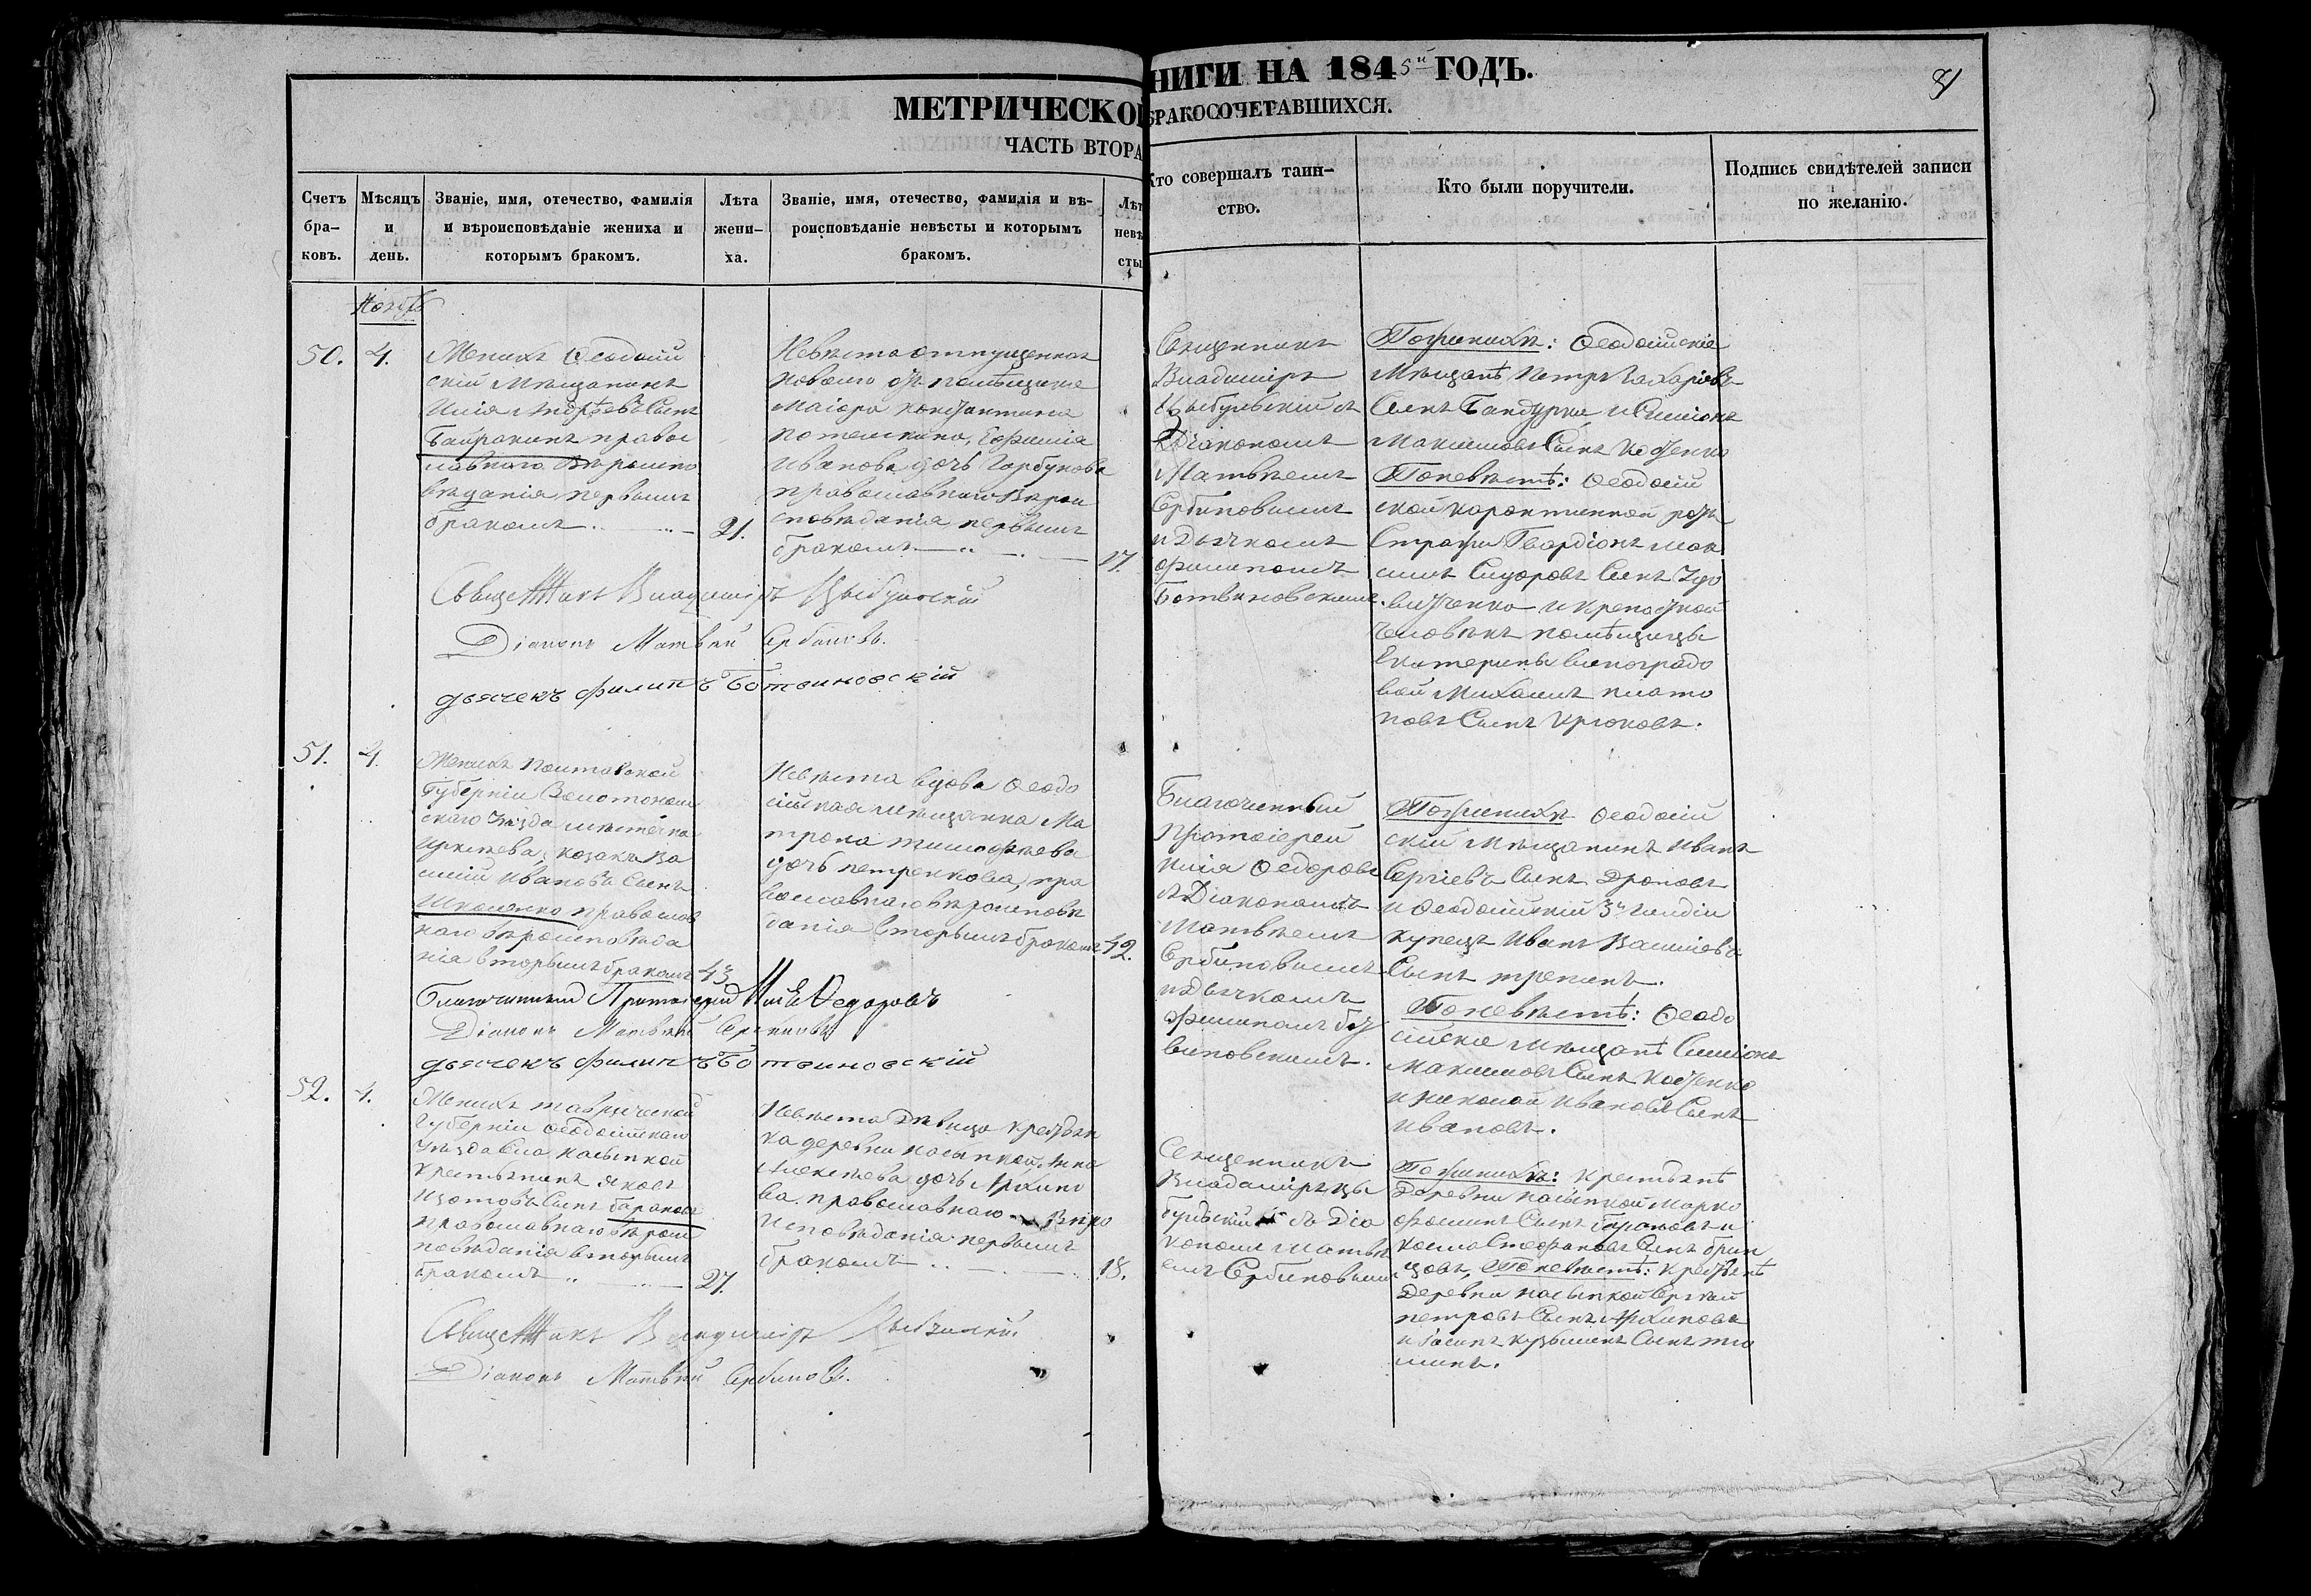 МЕТРИЧЕСКО
НИГИ НА 1845й ГОДЪ.
81
ЧАСТЬ ВТОРА
БРАКОСОЧЕТАВШИХСЯ.
Счетъ бра-ковъ.
Мѣсяцъ и день.
Званіе, имя, отечество, фамилія
и вѣроисповѣданіе жениха и
которымъ бракомъ.
Лѣта жени-ха.
Званіе, имя, отечество, фамилія и вѣ-
роисповѣданіе невѣсты и которымъ
бракомъ.
Лѣт
невѣ
сты
Кто совершалъ таин-
ство.
Кто были поручители.
Подпись свидѣтелей записи
по желанію.
50.
4.
Женихъ Ѳеодосій
скій мѣщанинъ
Илія Андрѣевъ Сынъ
Байракинъ правос
лавнаго вѣроиспо
вѣданія первымъ
бракомъ
21.
Невѣста отпущенная
на волю отъ помѣщика
маіора Константина
Потемкина, Ефимія
Иванова дочь Горбунова
православнаго вѣрои
сповѣданія первымъ
бракомъ
17.
Священникъ
Владиміръ
Цыбульскій съ
Діакономъ
Матвѣемъ
Сербиновымъ
и Дьячкомъ
Филипомъ
Ботвиновскимъ.
По женихѣ: Ѳеодосійскіе
мѣщанѣ Петръ Захаріевъ
Сынъ Бандурка и Симіонъ
Максимовъ Сынъ Костенко
По невѣстѣ: Ѳеодосій
ской карантинной роты
Стражи Гвардіонъ Мак
симъ Сидоровъ Сынъ
и крепостной
человѣкъ помѣщицы
Екатерины Виноградо
вой Михаилъ Плато
новъ Сынъ Крюковъ.
Священникъ Владиміръ Цыбульскій
Діаконъ Матвѣй Сербиновъ.
дьячекъ Филипъ Ботвиновскій
51.
4.
Женихъ Полтавской
Губерніи Золотонош
скаго уѣзда мѣстечка
Иркле­ева, козакъ Ва
силій Ивановъ Сынъ
Школенко православ
наго вѣроисповѣда
нія вторымъ бракомъ
43
Невѣста вдова Ѳеодо
сійская мѣщанка Ма
трона Тимофѣева
дочь Петренкова, пра
вославнаго вѣроисповѣ
данія вторымъ бракомъ
42.
Благочинный
Протоіерей
Илія Ѳедоровъ
съ Діакономъ
Матвѣемъ
Сербиновымъ
и Дьячкомъ
Филипомъ Бот
виновскимъ.
По женихѣ Ѳеодосій
скій мѣщанинъ Иванъ
Сергіевъ Сынъ Дроновъ
и Ѳеодосійскій 3й гильдіи
купецъ Иванъ Василіевъ
Сынъ
По невѣстѣ: Ѳеодо
сійскіе мѣщанѣ Симіонъ
Максимовъ Сынъ Костенко
и Николай Ивановъ Сынъ
Ивановъ.
Благочинный Протоіерей Илія Ѳедоровъ
Діаконъ Матвѣй Сербиновъ
дьячекъ Филипъ Ботвиновскій
52.
4.
Женихъ Таврической
Губерніи Ѳеодосійскаго
уѣзда Села Насыпкой
крестьянинъ Яковъ
Изотовъ Сынъ Барановъ
православнаго вѣроис
повѣданія вторымъ
бракомъ
27.
Невѣста Дѣвица крестьян
ка деревни Насыпкой Анна
Алексѣева дочь Архипо
ва православнаго вѣро
исповѣданія первымъ
бракомъ
18.
Священникъ
Владиміръ Цы
бульскій съ Діа
кономъ Матвѣ
емъ Сербиновымъ
По женихѣ: крестьянѣ
Деревни Насыпкой Марко
Фоминъ Сынъ Барановъ и
Косма Стефановъ Сынъ
цовъ, По невѣстѣ: крестьянѣ
Деревни Насыпкой Сергѣй
Петровъ Сынъ Архиповъ
и Кузьминъ Сынъ
Священникъ Владиміръ Цыбульскій
Діаконъ Матвѣй Сербиновъ.